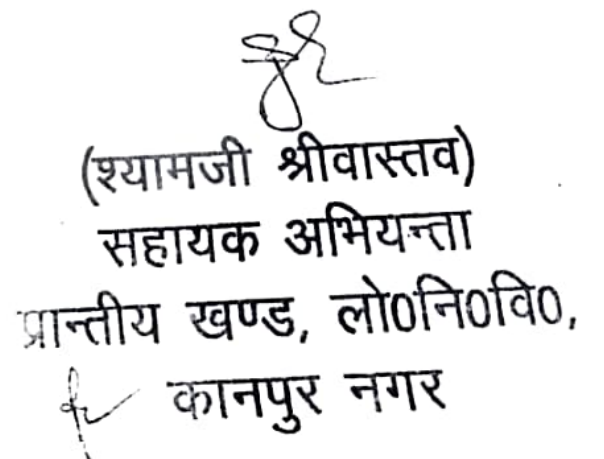 (श्यामजी श्रीवास्तव)
सहायक अभियन्ता
प्रान्तीय खण्ड, लो0नि0वि0,
कानपुर नगर